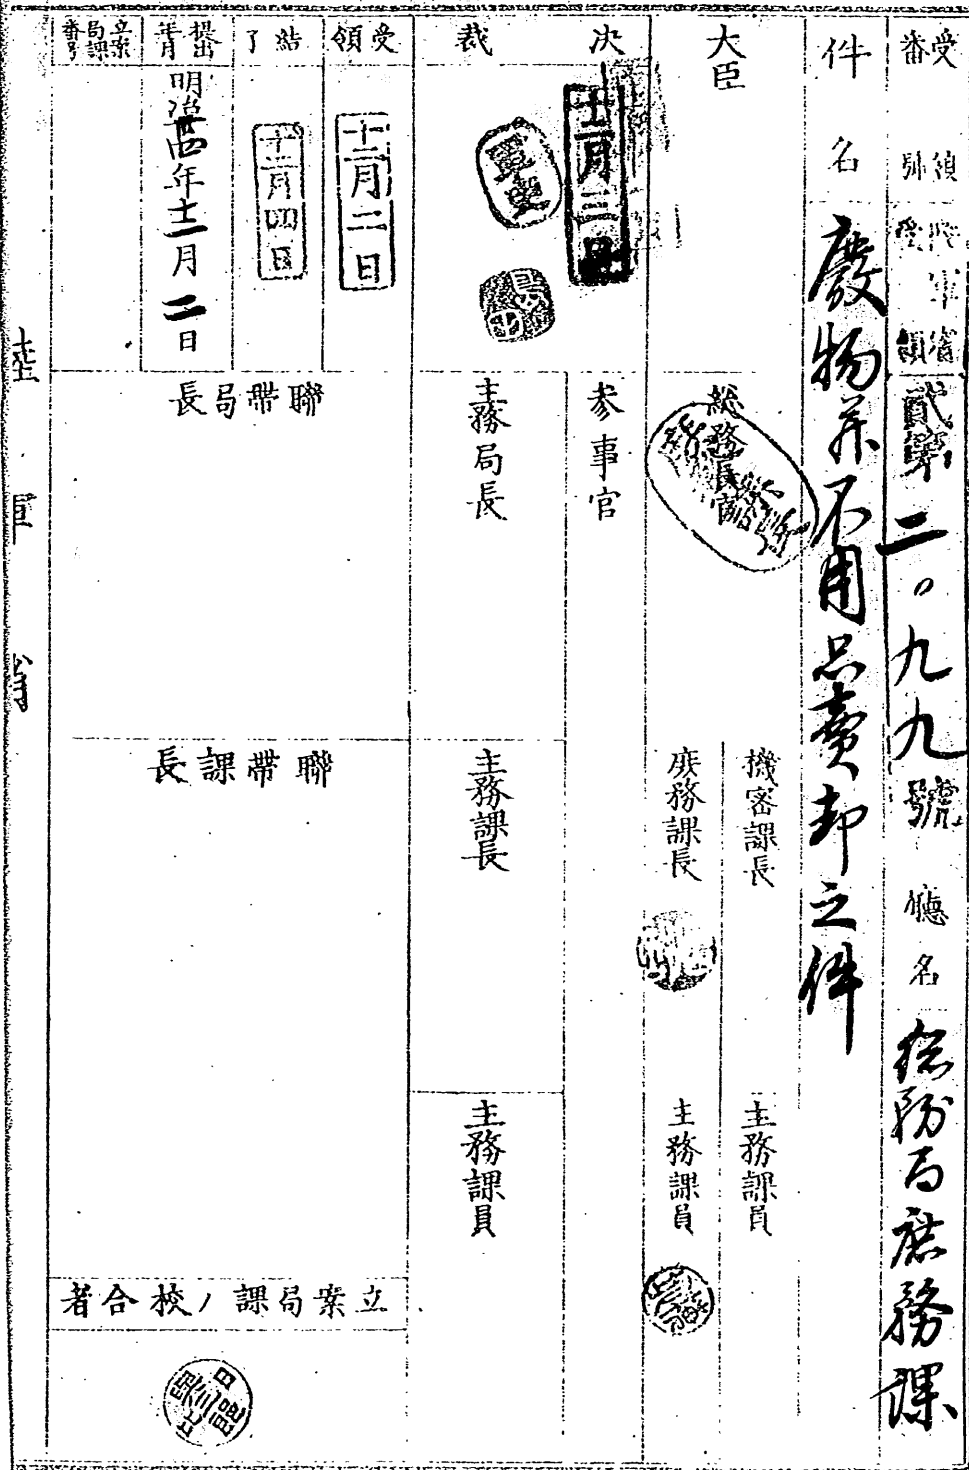 受領番號 陸軍省受領 貳第二〇九九號 廳名 総務局庶務課
件名 廢物并不用品賣却之件
大臣
総務長官
機密課長
主務課員
庶務課長
主務課員
決裁
十二月三日
参事官
主務局長
主務課長
主務課員
受領
十二月二日
結了
十二月四日
提出年月
明治廿四年十二月二日
立案局課番号
聯帶局長
聯帶課長
立案局課ノ校合者
陸軍省